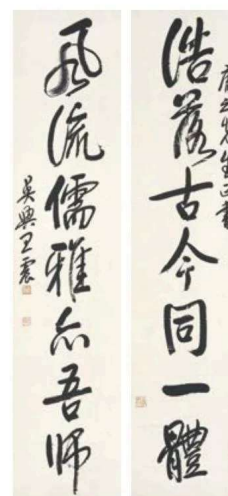 先生正
浩落古今同一體
風流儒雅亦吾師
吳興王震